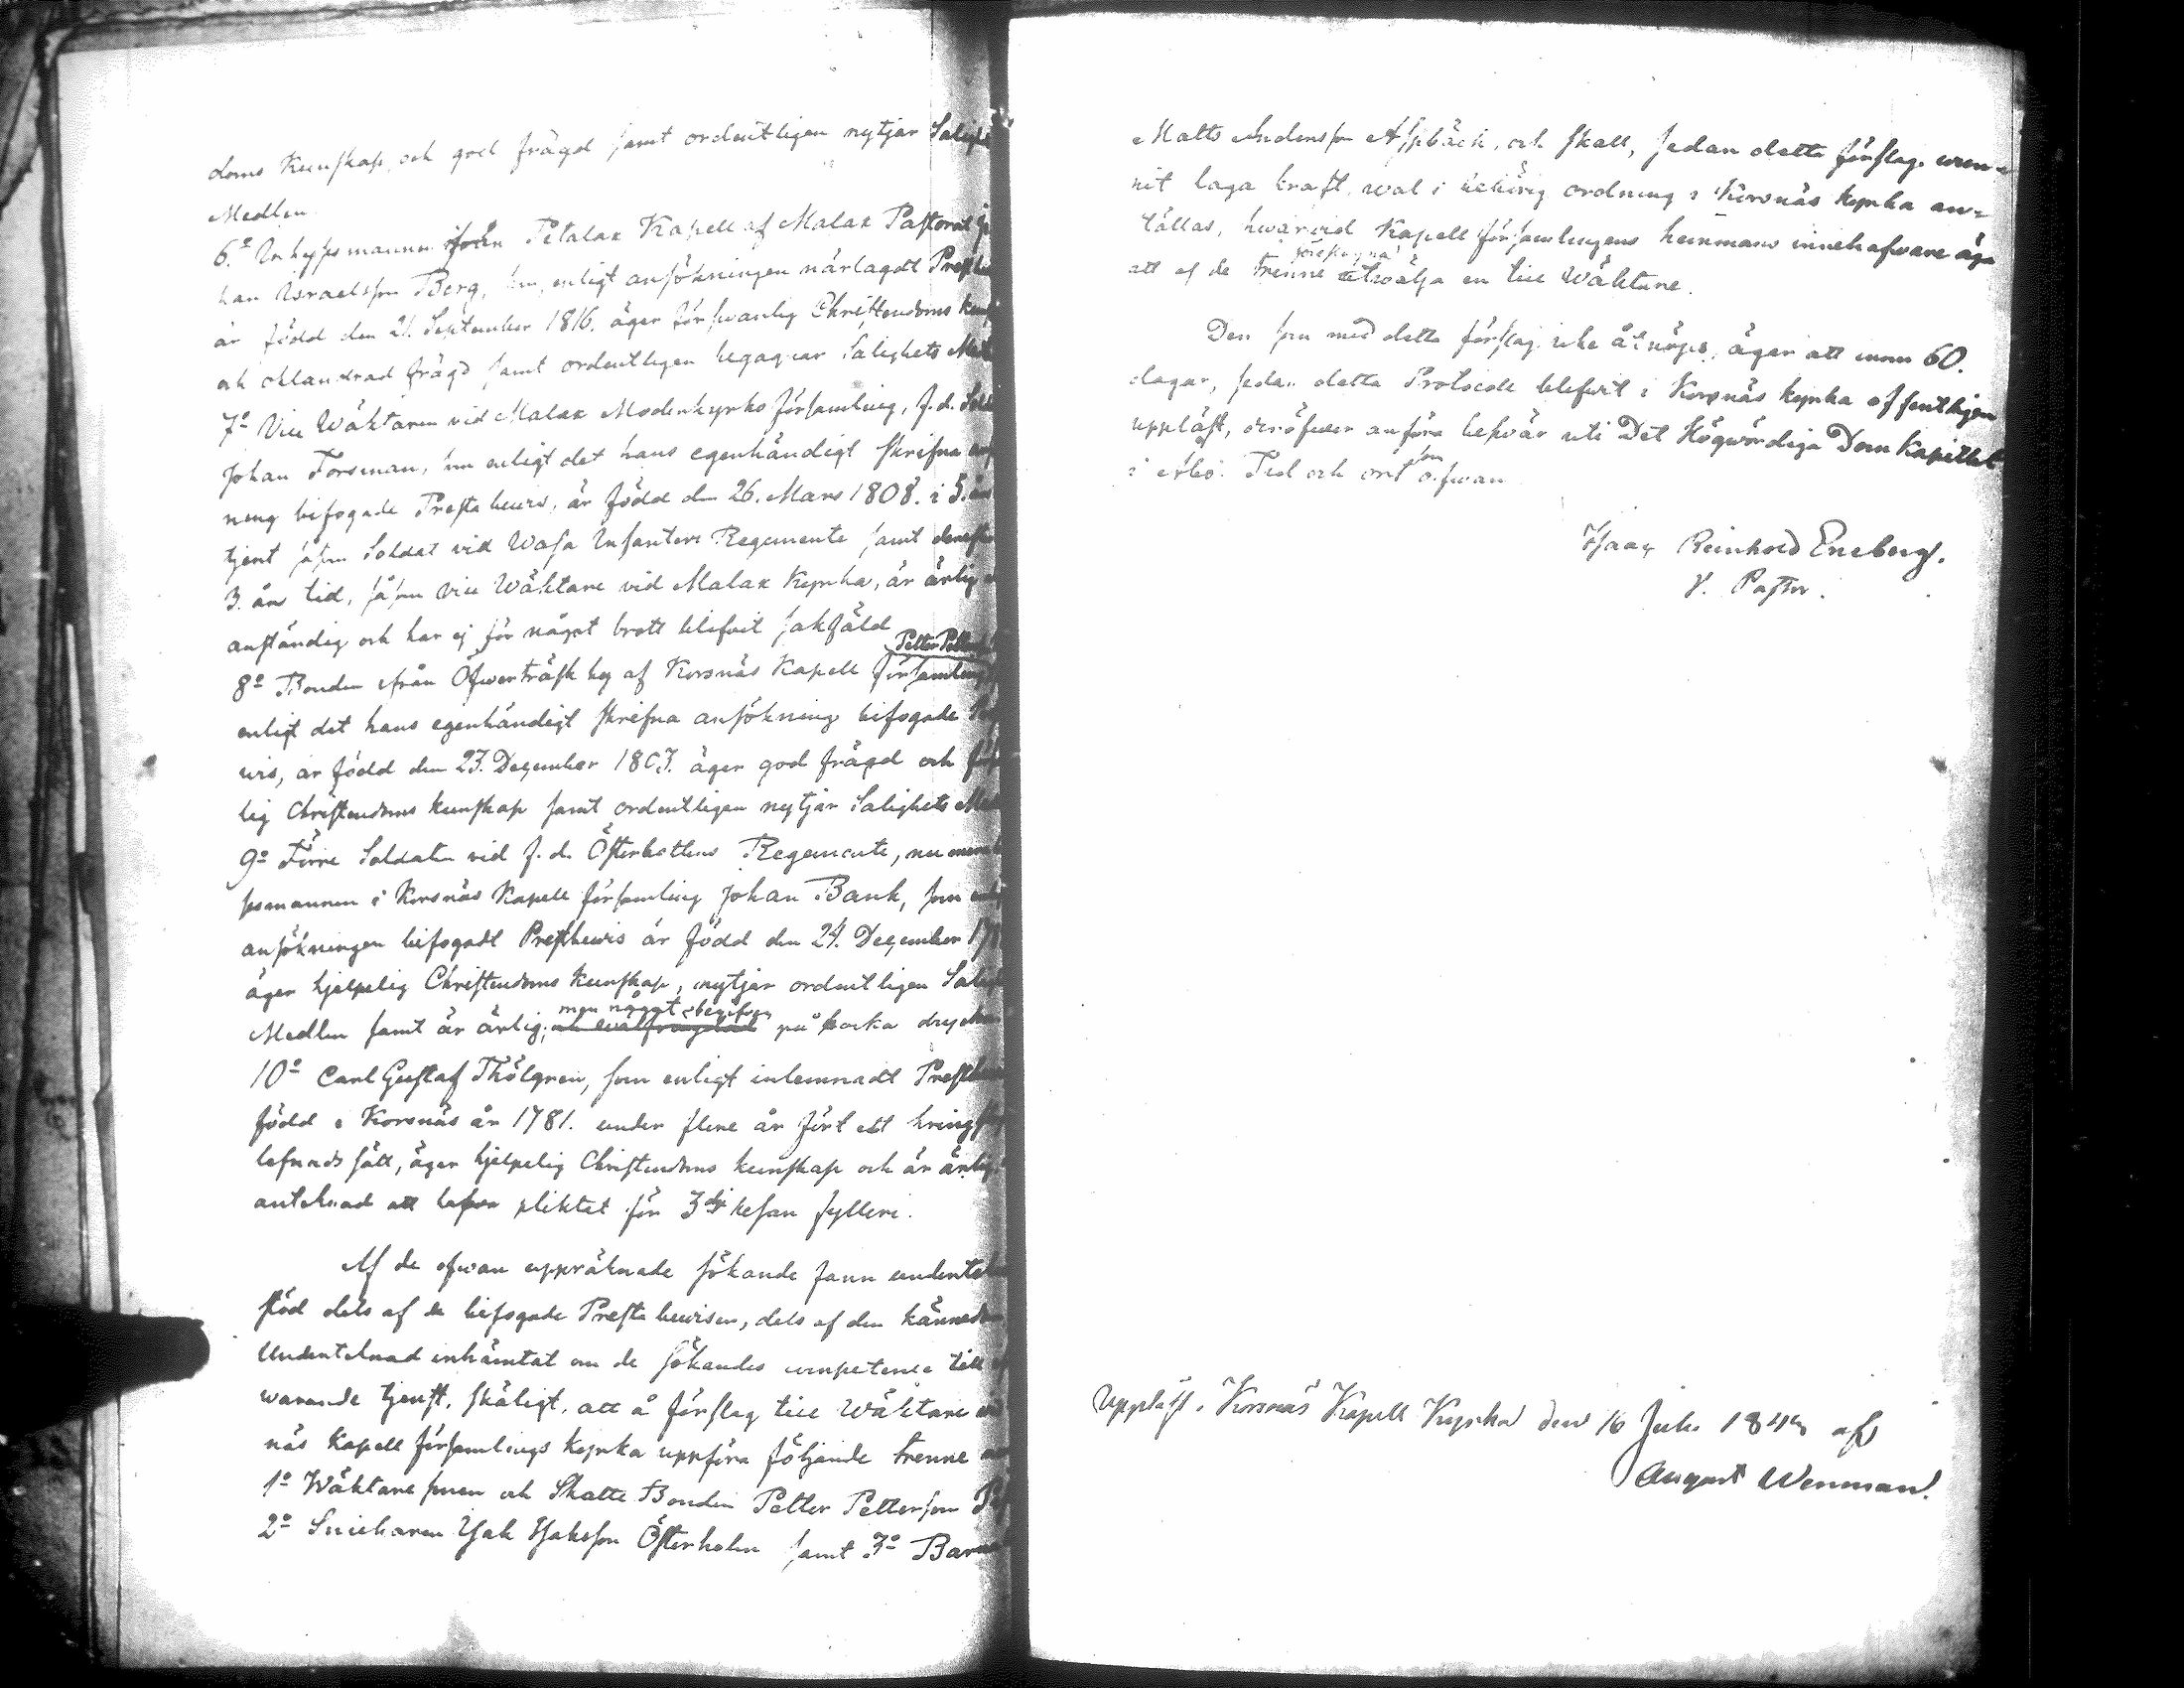 doms Kunskap, och god frägd samt ordentligen nytjar Salighets
Medlen.
6:o Inhysesmannen ifrån Petalax Kapell af Malax Pastorat Jo
han Israelsson Berg, som, enligt ansökningen närlagdt Prest
är född den 21. September 1816. äger försvarlig Christendoms kun
och oklandrad frägd samt ordentligen begagnar Salighets Med
7:o Vice Wäktaren vid Malax Moderkyrko församling, f.d. Solda
Johan Forsman, som enligt det hans egenhändigt skrifna ansök
ning bifogade Prestabewis, är född den 26. Mars 1808. i 5. års
tjent såsom Soldat vid Wasa Infanterie Regemente samt derefter
3. års tid, såsom Vice Wäktare vid Malax Kyrka, är ärlig
anständig och har ej för något brott blifvit sakfäld
8:o Bonden ifrån Öfwerträsk by af Korsnäs Kapell församling Petter Petters
enligt det hans egenhändigt skrifna ansökning bifogade
wis, är född den 23. December 1803. äger god frägd och förs
lig Christendoms kunskap samt ordentligen nytjar Salighets Med
9:o Förre Soldaten vid f.d. Österbottens Regemente, nu mera
semannen i Korsnäs Kapell församling Johan Bank, som enl
ansökningen bifogadt Prestbewis är född den 24. December 17
äger hjelpelig Christendoms kunskap, nytjar ordentligen Sali
Medlen samt är ärlig, men något begifven på starka dryck
10:o Carl Gustaf Thölgren, som enligt inlemnadt Prestbe
född i Korsnäs år 1781. under flere år fört ett kring
lefnads sätt, äger hjelpelig Christendoms kunskap och är ärlig
antecknad att hafva pliktat för 3dje resan fylleri.
Af de ofwan uppräknade sökande fann undertek
stöd dels af de bifogade Presta bewisen, dels af den kännedom
Undertecknad inhämtat om de sökandes competence till
warande tjenst, skäligt, att å förslag till Wäktare
näs Kapell församlings kyrka uppföra följande trenne
1:o Wäktare sonen och Skatte Bonden Petter Petterson
2:o Snickaren Isak Isaksson Österholm samt 3:o Bar
Matts Andersson Aspbäck, och skall, sedan detta förslag wun-
nit laga kraft, wal i behörig ordning i Korsnäs kyrka an-
ställas, hwarvid Kapell församlingens hemmans innehafvare äga
att af de trenne föreslagna utwälja en till Wäktare.
Den som med detta förslag icke åtnöjes, äger att inom 60.
dagar, sedan detta Protocoll blifvit i Korsnäs kyrka offentligen
uppläst, deröfwer anföra beswär uti Det Högwördiga Dom Kapitlet
i Åbo. Tid och ort som ofwan
Isaac Reinhold Eneberg.
V. Pastor.
Uppläst i Korsnäs Kapell Kyrka den 16 Juli af
August Wenman.